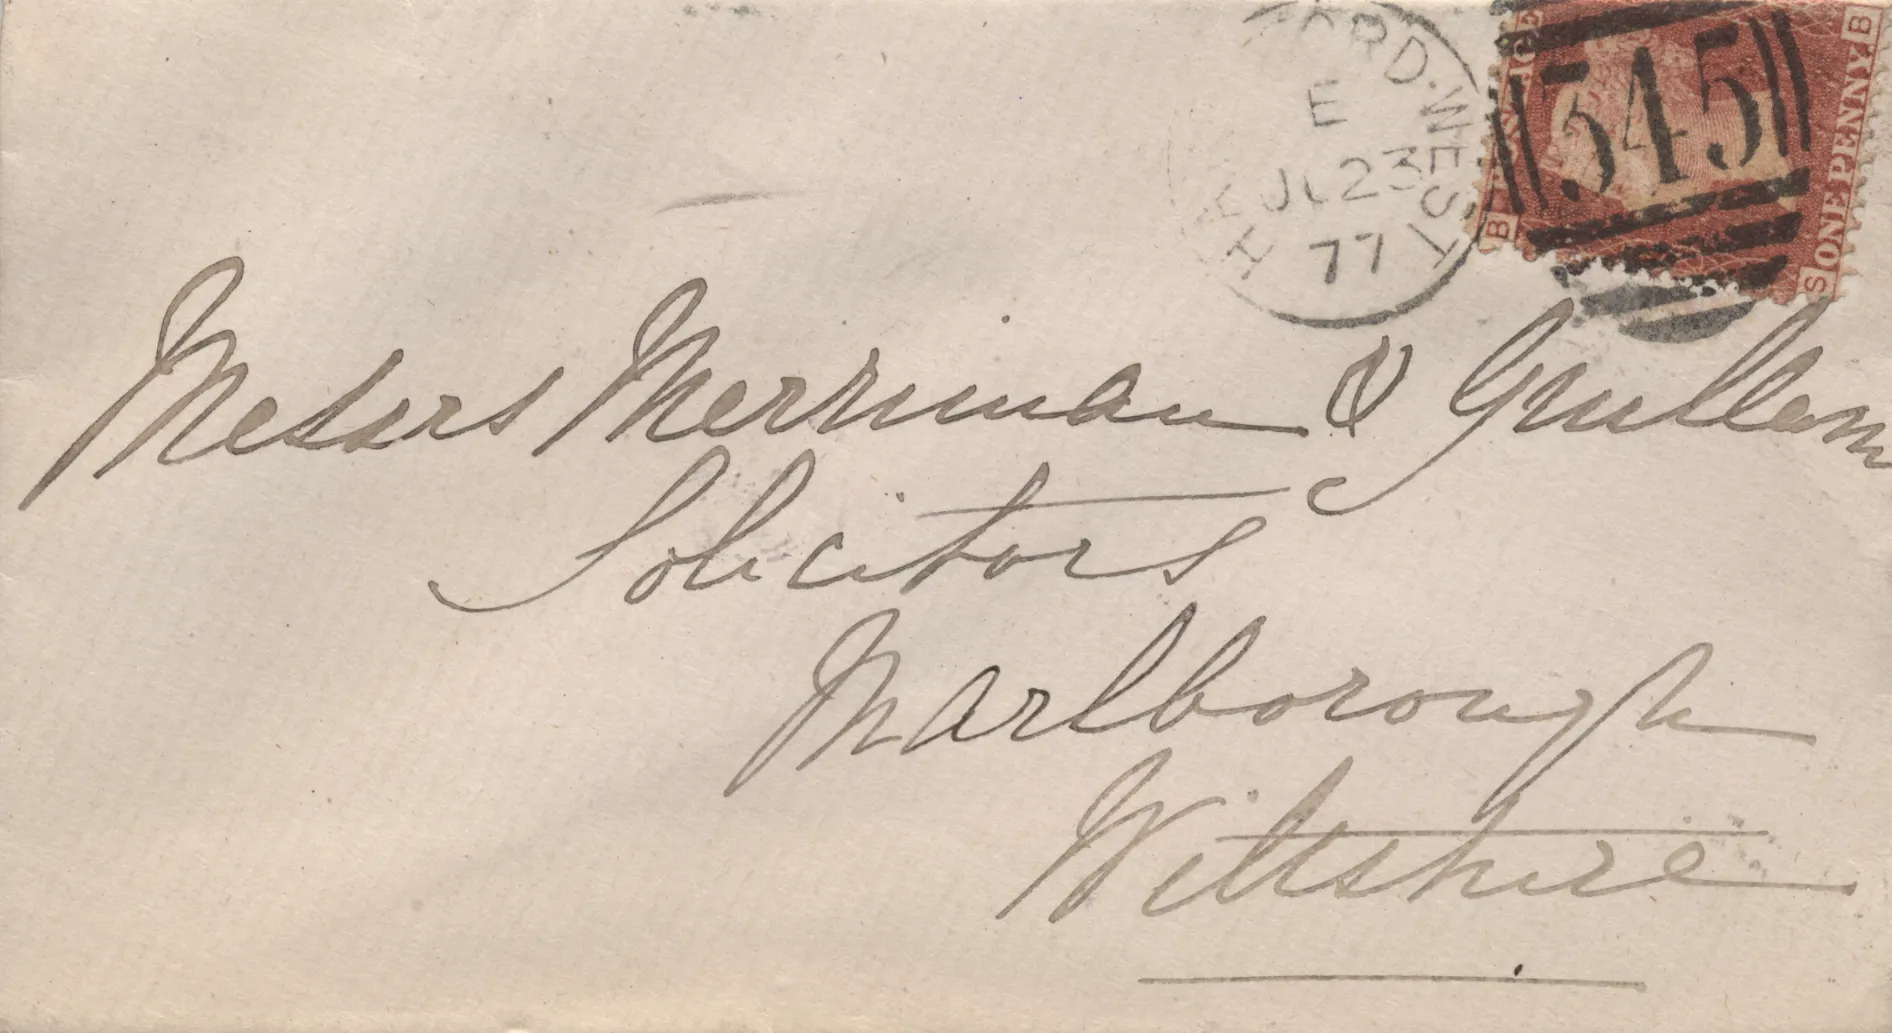 HAVERFORD·WEST
E
JL 23
77
345
ONE PENNY
B
B
S
Messrs Merriman & Gwillim
Solicitors
Marlborough
Wiltshire